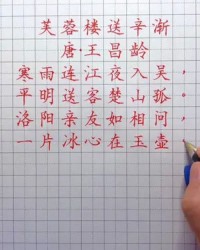 芙蓉楼送辛渐
唐·王昌龄
寒雨连江夜入吴，
平明送客楚山孤。
洛阳亲友如相问，
一片冰心在玉壶